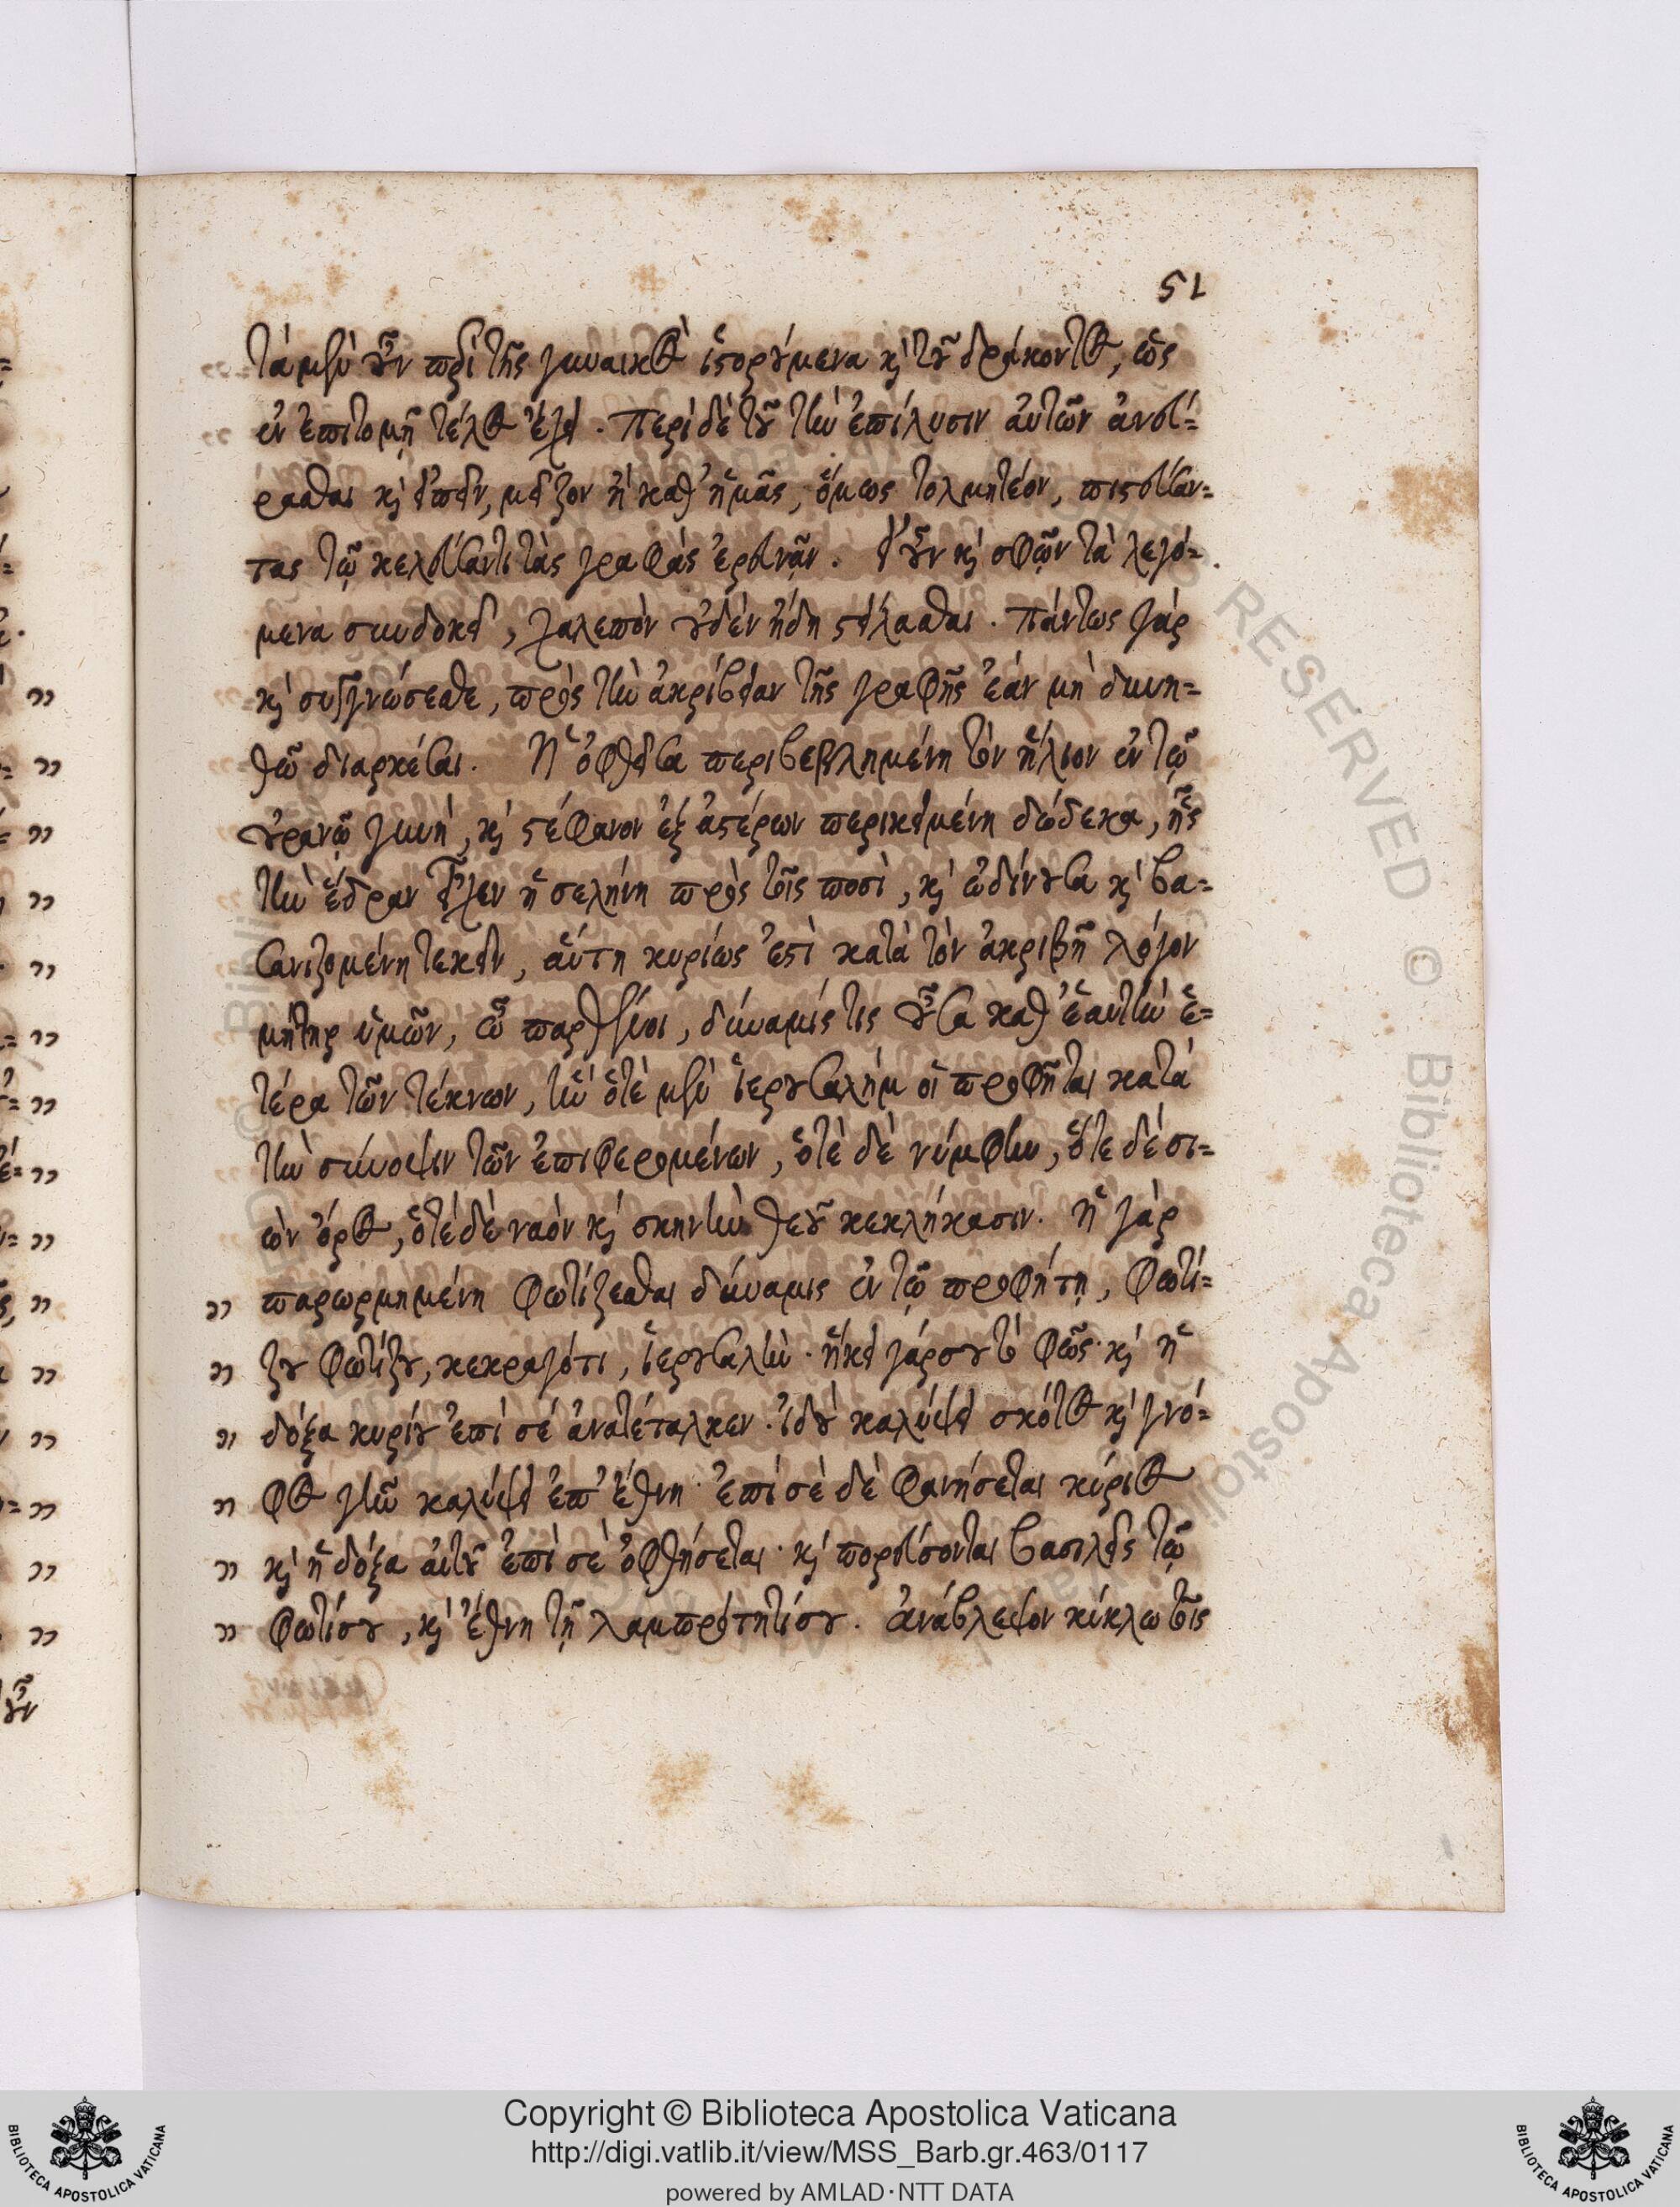 51
τὰ μὲν οὖν περὶ τῆς γυναικὸς ἱστορούμενα καὶ τοῦ δράκοντος, ὡς
ἐν ἐπιτομῇ τέλος ἔχει. Περὶ δὲ τοῦ τὴν ἐπίλυσιν αὐτῶν ἀνευ=
ρασθαι καὶ εἰπεῖν, μεῖζον ἢ καθ' ἡμᾶς, ὅμως τολμητέον, πιστεύσαν=
τας τῷ κελεύσαντι τὰς γραφὰς ἐρευνᾷν. Εἰ οὖν καὶ σφῷν τὰ λεγό=
μενα συνδοκεῖ, χαλεπὸν οὐδὲν ἤδη στείλασθαι. πάντως γὰρ
καὶ συγγνώσεσθε, πρὸς τὴν ἀκρίβειαν τῆς γραφῆς ἐὰν μὴ δυνη=
θῶ διαρκέσαι. Ἡ ὀφθεῖσα περιβεβλημένη τὸν ἥλιον ἐν τῷ
οὐρανῷ γυνή, καὶ στέφανον ἐξ ἀστέρων περικειμένη δώδεκα, ἧς
τὴν ἕδραν εἶχεν ἡ σελήνη πρὸς τοῖς ποσὶ, καὶ ὠδίνουσα καὶ βα=
σανιζομένη τεκεῖν, αὕτη κυρίως ἐστὶ κατὰ τὸν ἀκριβῆ λόγον
μήτηρ ὑμῶν, ὦ παρθένοι, δύναμίς τις οὖσα καθ' ἑαυτὴν ἑ=
τέρα τῶν τέκνων, ἣν ὁτὲ μὲν ἱερουσαλὴμ οἱ προφῆται κατὰ
τὴν σύνοψιν τῶν ἐπιφερομένων, ὁτὲ δὲ νύμφην, ὁτὲ δὲ σι=
ὼν ὄρος, ὁτὲ δὲ ναὸν καὶ σκηνὴν θεοῦ κεκλήκασιν. ἡ γὰρ
" παρωρμημένη φωτίζεσθαι δύναμις ἐν τῷ προφήτῃ, φωτί=
" ζου φωτίζου, κεκραγότι, ἱερουσαλὴμ. ἥκει γάρ σου τὸ φῶς· καὶ ἡ
" δόξα κυρίου ἐπὶ σὲ ἀνατέταλκεν. ἰδοὺ καλύψει σκότος καὶ γνό=
" φος γῆν καλύψει ἐπ' ἔθνη· ἐπὶ σὲ δὲ φανήσεται κύριος
" καὶ ἡ δόξα αὐτοῦ ἐπὶ σὲ ὀφθήσεται. καὶ πορεύσονται βασιλεῖς τῷ
" φωτί σου, καὶ ἔθνη τῇ λαμπρότητί σου. ἀνάβλεψον κύκλῳ τοῖς
Copyright © Biblioteca Apostolica Vaticana
http://digi.vatlib.it/view/MSS_Barb.gr.463/0117
powered by AMLAD·NTT DATA
BIBLIOTECA APOSTOLICA VATICANA
BIBLIOTECA APOSTOLICA VATICANA